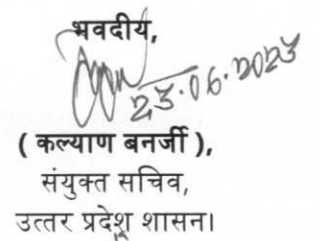 भवदीय,
23.06.2023
( कल्याण बनर्जी ),
संयुक्त सचिव,
उत्तर प्रदेश शासन।